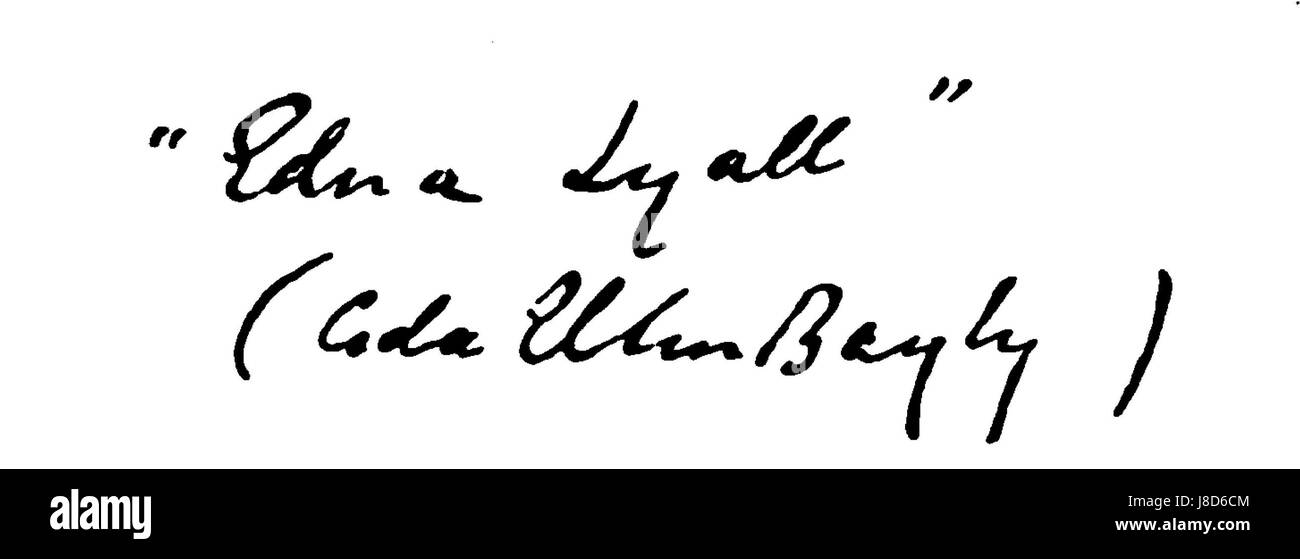 "Edna Lyall"
(Ada Ellen Bayly)
alamy
Image ID: J8D6CM
www.alamy.com